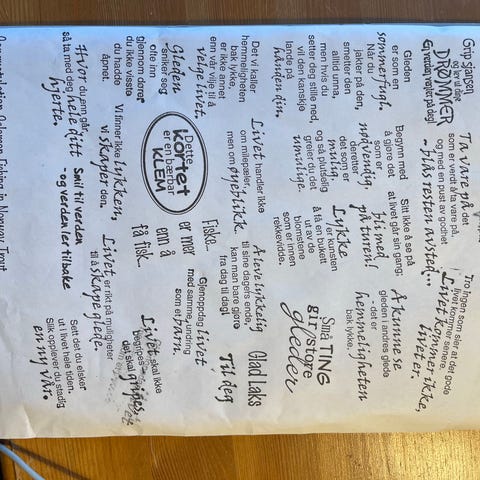 DRØMMER
Ta vare på det
som er verdt å ta vare på,
og med en pust av godhet
- blås resten avsted...
Tro ingen som sier at det gode
livet kommer senere.
Livet kommer ikke,
livet er.
Gleden
er som en
sommerfugl.
Når du
jakter på den,
smetter den
alltid unna,
men hvis du
setter deg stille ned,
vil den kanskje
lande på
hånden din.
Begynn med
å gjøre det
nødvendig
oppretter
det som er
mulig,
og så plutselig
greier du det
umulige.
Sitt ikke å se på
at livet går sin gang;
bli med
på turen!
Lykke
er kunsten
å få en bukett
ut av de
blomstene
som er innen
rekkevidde.
Å kunne se
gleden i andres glede
- det er
hemmeligheten
bak lykke,
Små TING
gir store
gleder
Det vi kaller
hemmeligheten
bak lykke,
er ikke annet
enn vår vilje til å
velge livet.
Livet handler ikke
om milepæler,
men om øyeblikk.
Å leve lykkelig
til sine dagers ende,
kan man bare gjøre
fra dag til dag!
Glad Laks
Til deg
Gleden
sniker seg
ofte inn
gjennom dører
du ikke visste
du hadde
åpnet.
Dette
kortet
er en bærbar
KLEM
Fiske..
er mer
enn å
få fisk
Gjenoppdag livet
med samme undring
som et barn.
Livet skal ikke
begripes
det skal gripes.
Hvor du enn går,
så ta med deg hele ditt
hjerte.
Vi finner ikke lykken,
vi skaper den.
Smil til verden
- og verden ler tilbake
Livet er rikt på muligheter
til å skape glede.
Sett det du elsker
ut i livet hele tiden.
Slik opplever du stadig
en ny vår.